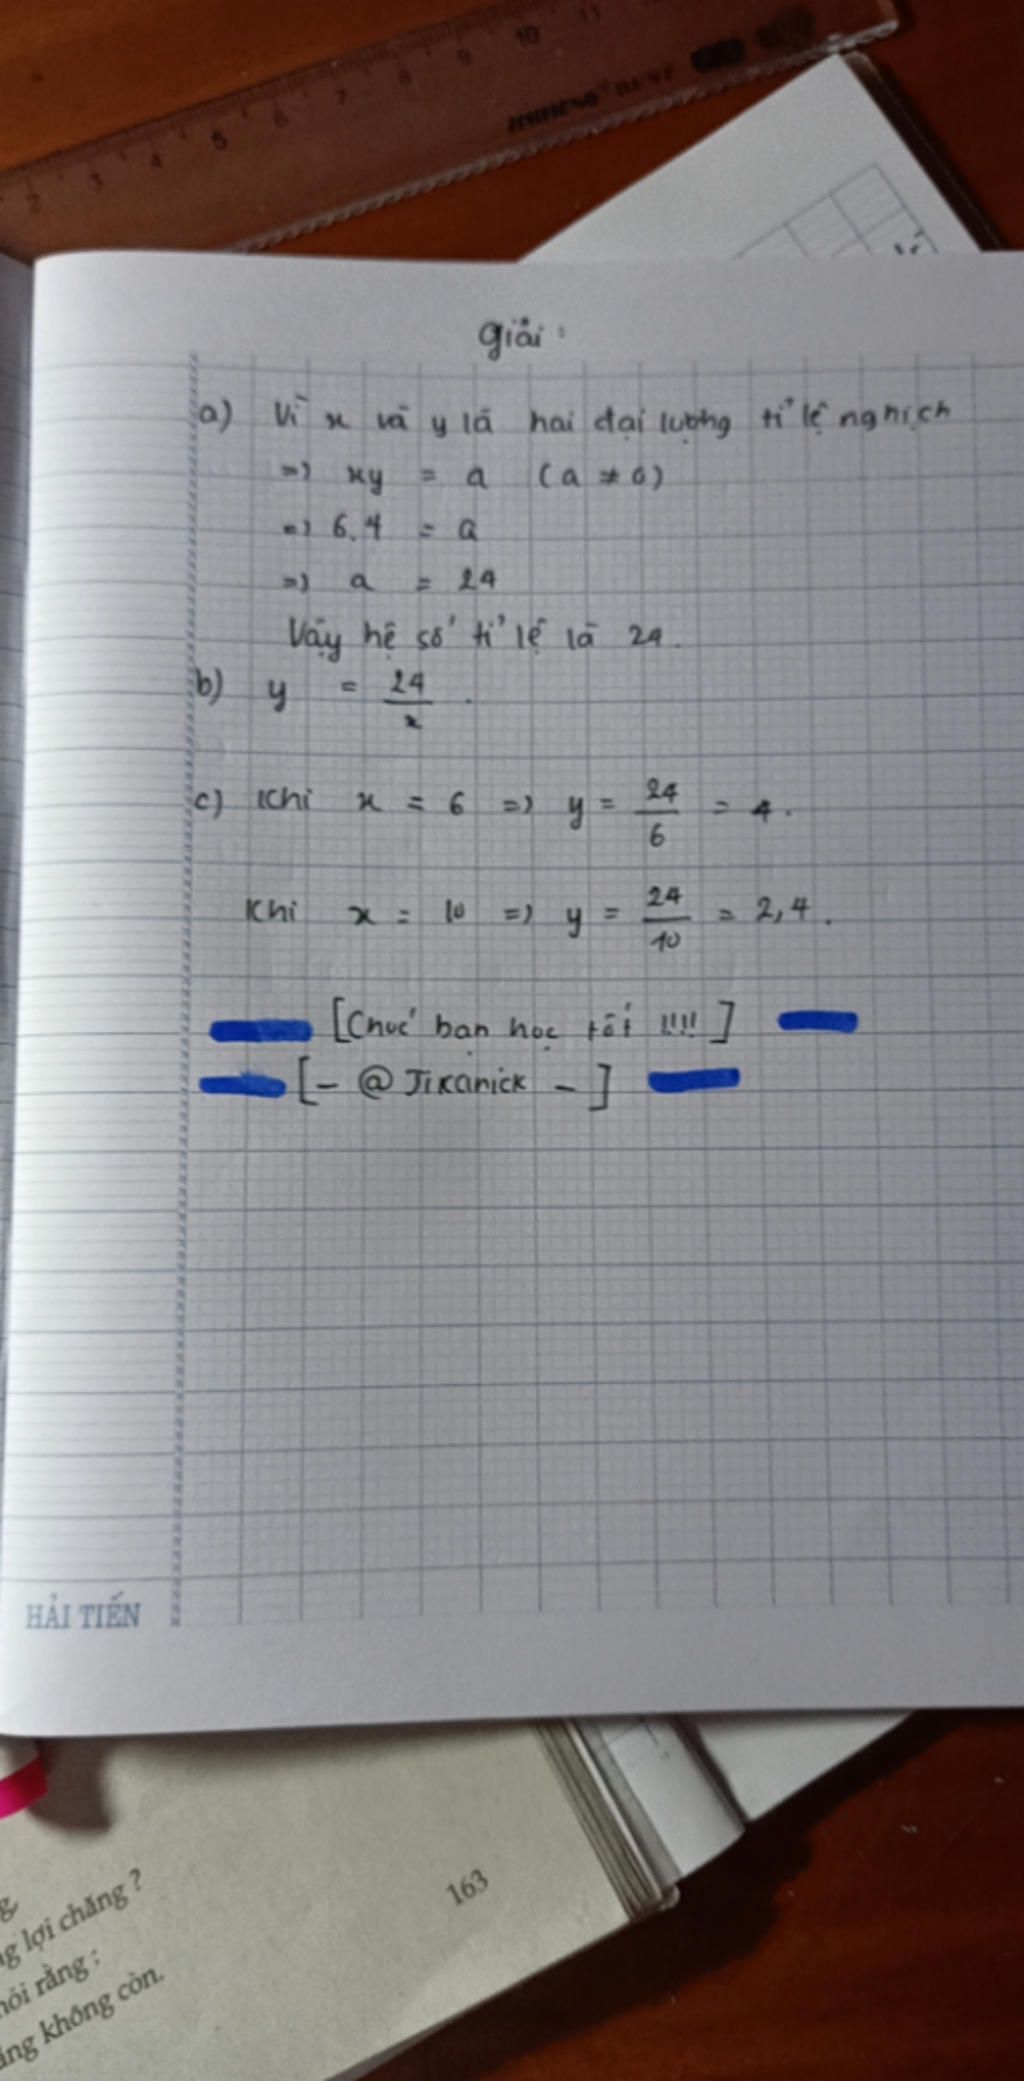 2 3 4 5 6 7 8 9 10 11
Giải :
a) Vì x và y là hai đại lượng tỉ lệ nghịch
=> xy = a (a ≠ 0)
=> 6.4 = a
=> a = 24
Vậy hệ số tỉ lệ là 24.
b) y = 24/x .
c) Khi x = 6 => y = 24/6 = 4.
Khi x = 10 => y = 24/10 = 2,4.
[Chúc bạn học tốt !!!!]
[- @ Jikanick -]
HẢI TIẾN
lợi chăng ?
rằng :
không còn.
163